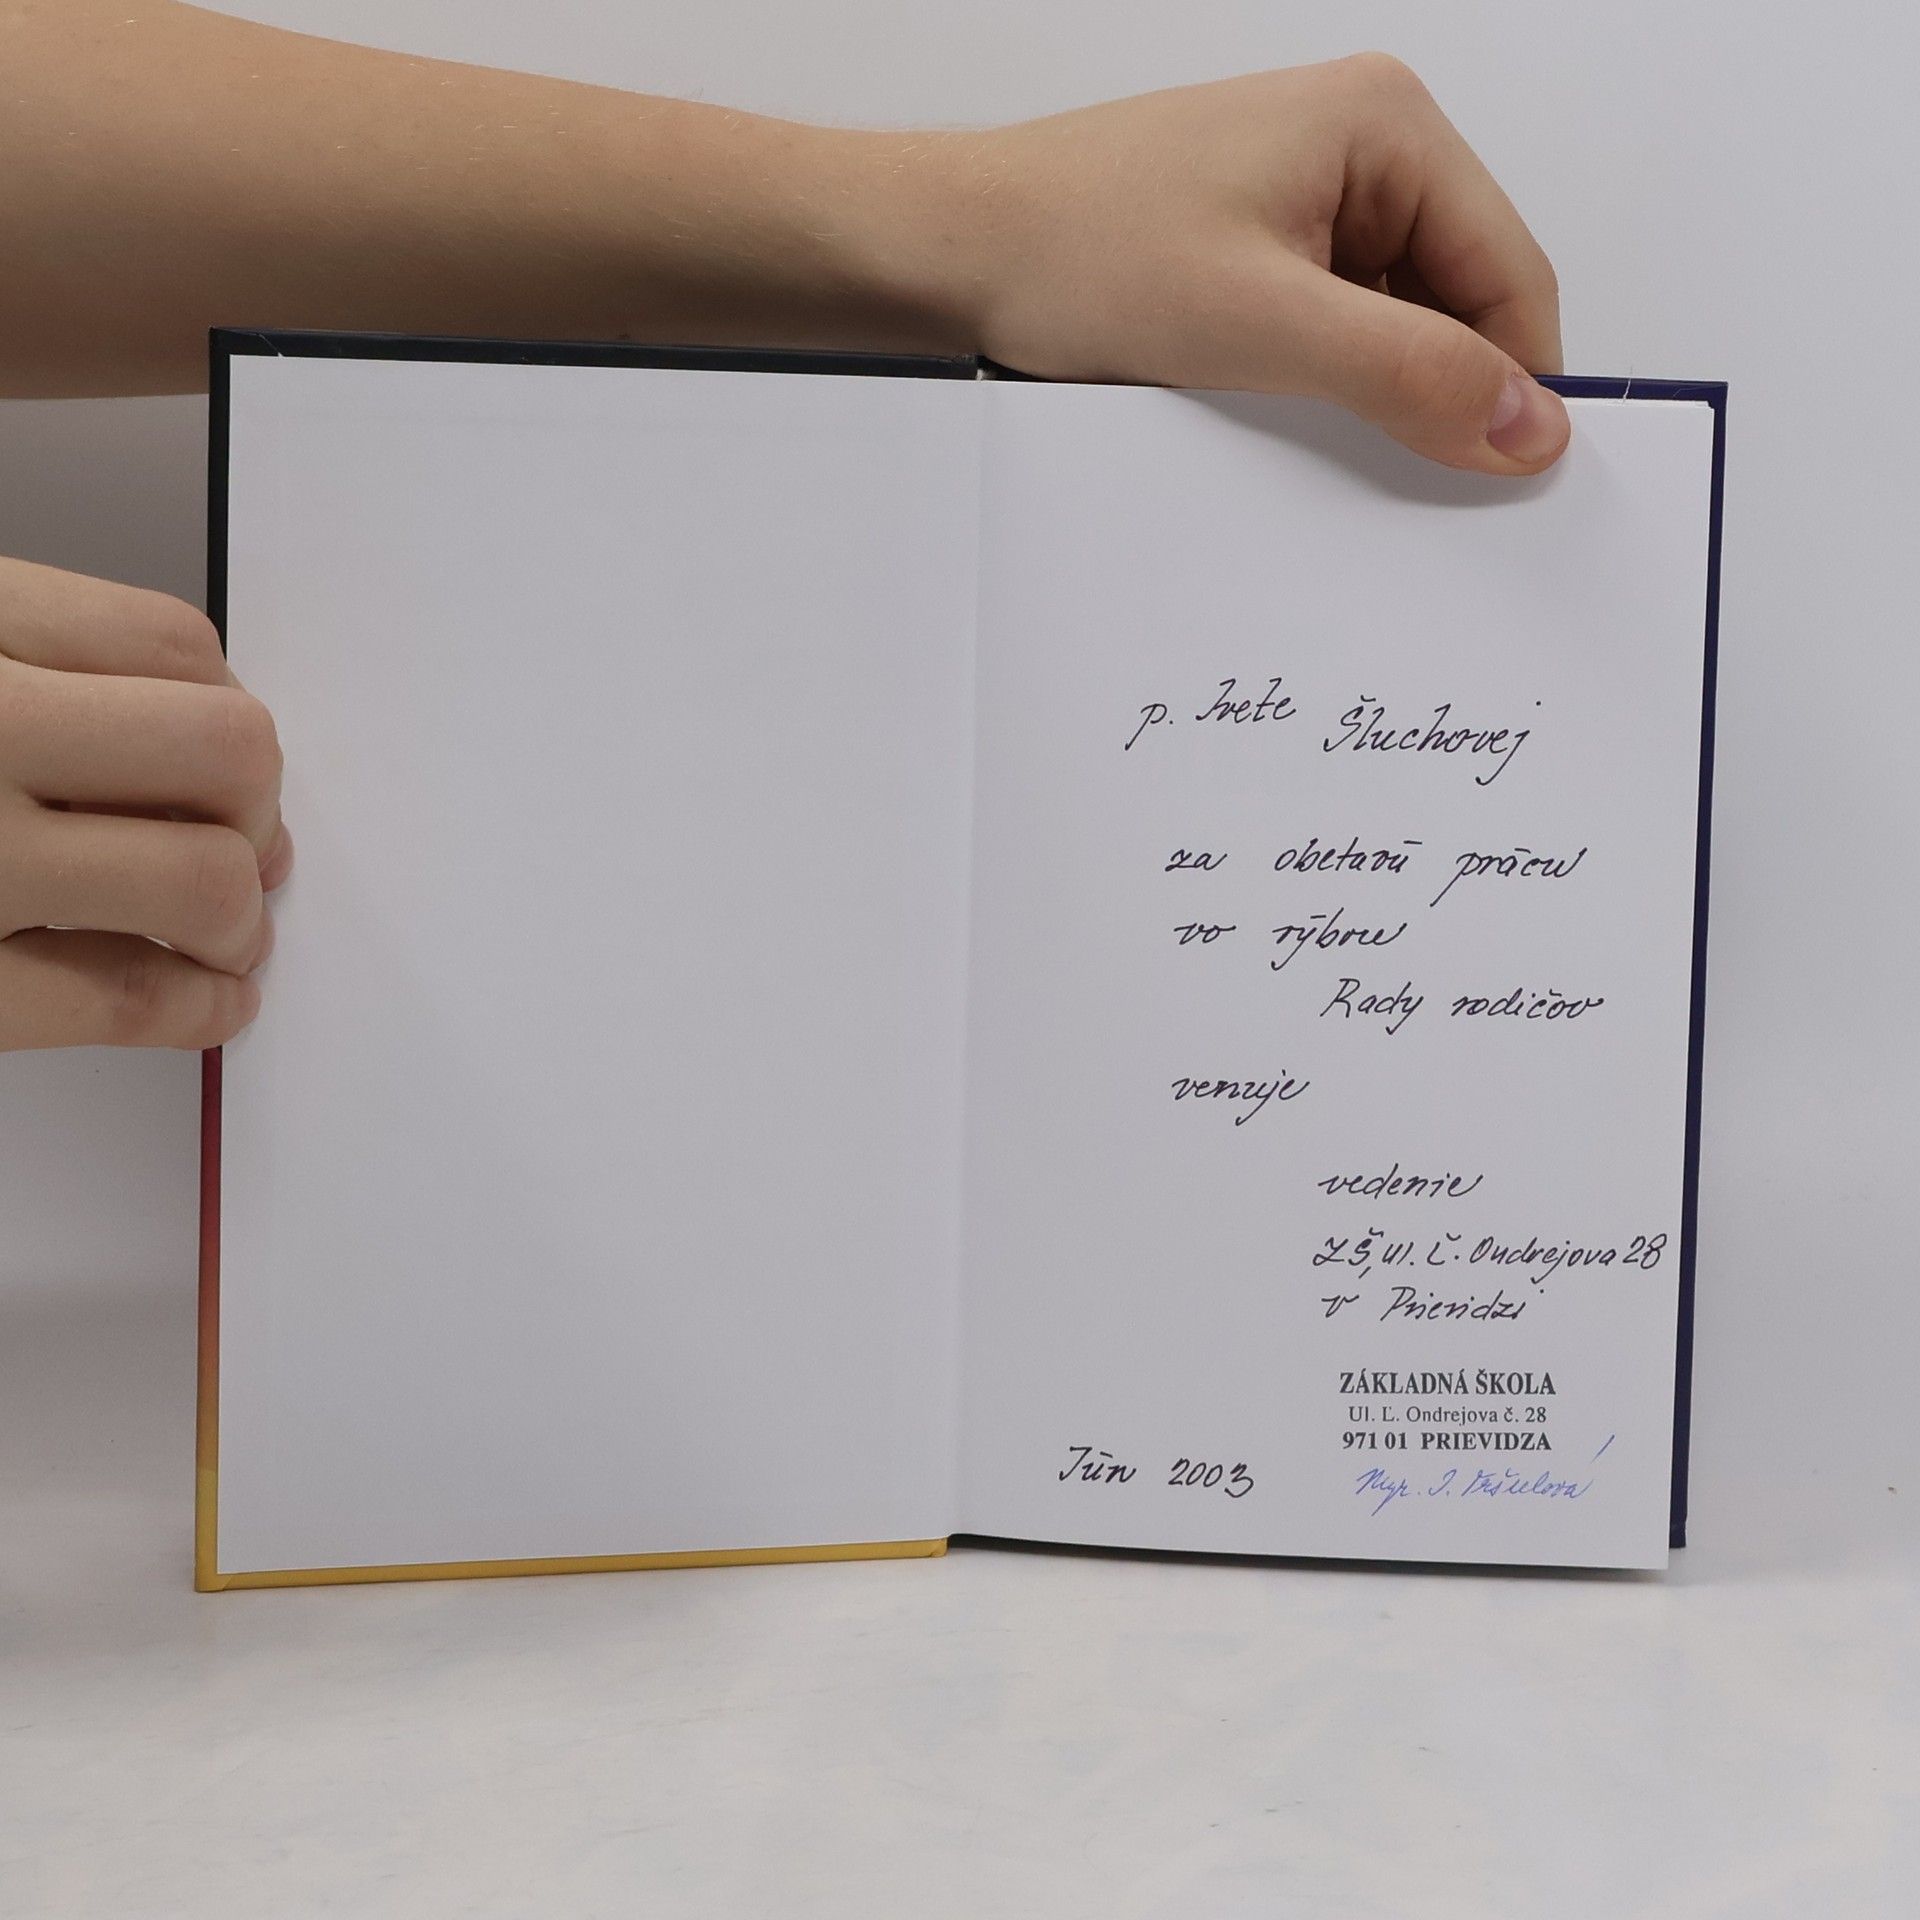 p. Ivete Šluchovej
za obetavú prácu
vo výbore
Rady rodičov
venuje
vedenie
ZŠ, ul. Ľ. Ondrejova 28
v Prievidzi
ZÁKLADNÁ ŠKOLA
Ul. Ľ. Ondrejova č. 28
971 01 PRIEVIDZA
Jún 2003
Mgr. I.